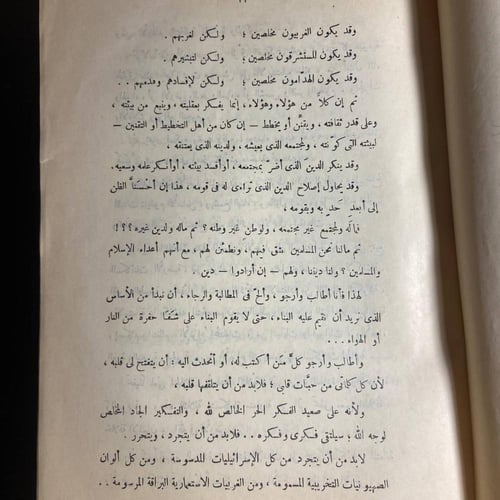 وقد يكون الغربيون مخلصين ؛ ولكن لغربهم .
وقد يكون المستشرقون مخلصين ؛ ولكن لتبشيرهم .
وقد يكون الهدّامون مخلصين ؛ ولكن لإفسادهم وهدمهم . .
ثم إن كلاًّ من هؤلاء وهؤلاء ، إنما يفكر بعقليته ، وينبع من بيئته ،
وعلى قدر ثقافته ، ويقنّن أو يخطط – إن كان من أهل التخطيط أو التقنين –
لبيئته التى كوّنته ، ولمجتمعه الذى يعيشه ، ولدينه الذى يعتنقه ،
وقد ينكر الدينَ الذى أضرّ بمجتمعه ، أو أفسد بيئته ، أو أسكر علمه وسعيه.
وقد يحاول إصلاح الدين الذى تراءى له فى قومه ، هذا إن أحْسَنّا الظن
إلى أبعدِ حَدٍّ به وبقومه ،
فما له ولمجتمع غير مجتمعه ، ولوطن غير وطنه ؟ ثم ماله ولدين غيره ؟؟!
ثم مالنا نحن المسلمين نثق فيهم ، ونطمئن لهم ، مع أنهم أعداء الإسلام
والمسلمين ؟ ولنا ديننا ، ولهم – إن أرادوا – دين .
لهذا فأنا أطالب وأرجو ، وألحّ فى المطالبة والرجاء، أن نبدأ من الأساس
الذى نريد أن نقيم عليه البناء ، حتى لا يقوم البناء على شفا حفرة من النار
أو الهواء . . .
وأطالب وأرجو كلَّ من أكتب له، أو أتحدث اليه ؛ أن يتفتح لى قلبه ،
لأن كل كلماتى من حبّات قلبى ؛ فلابد من أن يتلقفها قلبه ،
ولأنه على صعيد الفكر الحر الخالص لله ، والتفكير الجاد المخلص
لوجه الله ؛ سيلتقى فكرى وفكره . . فلابد من أن يتجرد ، ويتحرر .
لابد من أن يتجرد من كل الإسرائيليات المدسوسة ، ومن كل ألوان
الصهيونيات التخريبية المسمومة ، ومن الغربيات الاستعمارية البراقة المرسومة . .